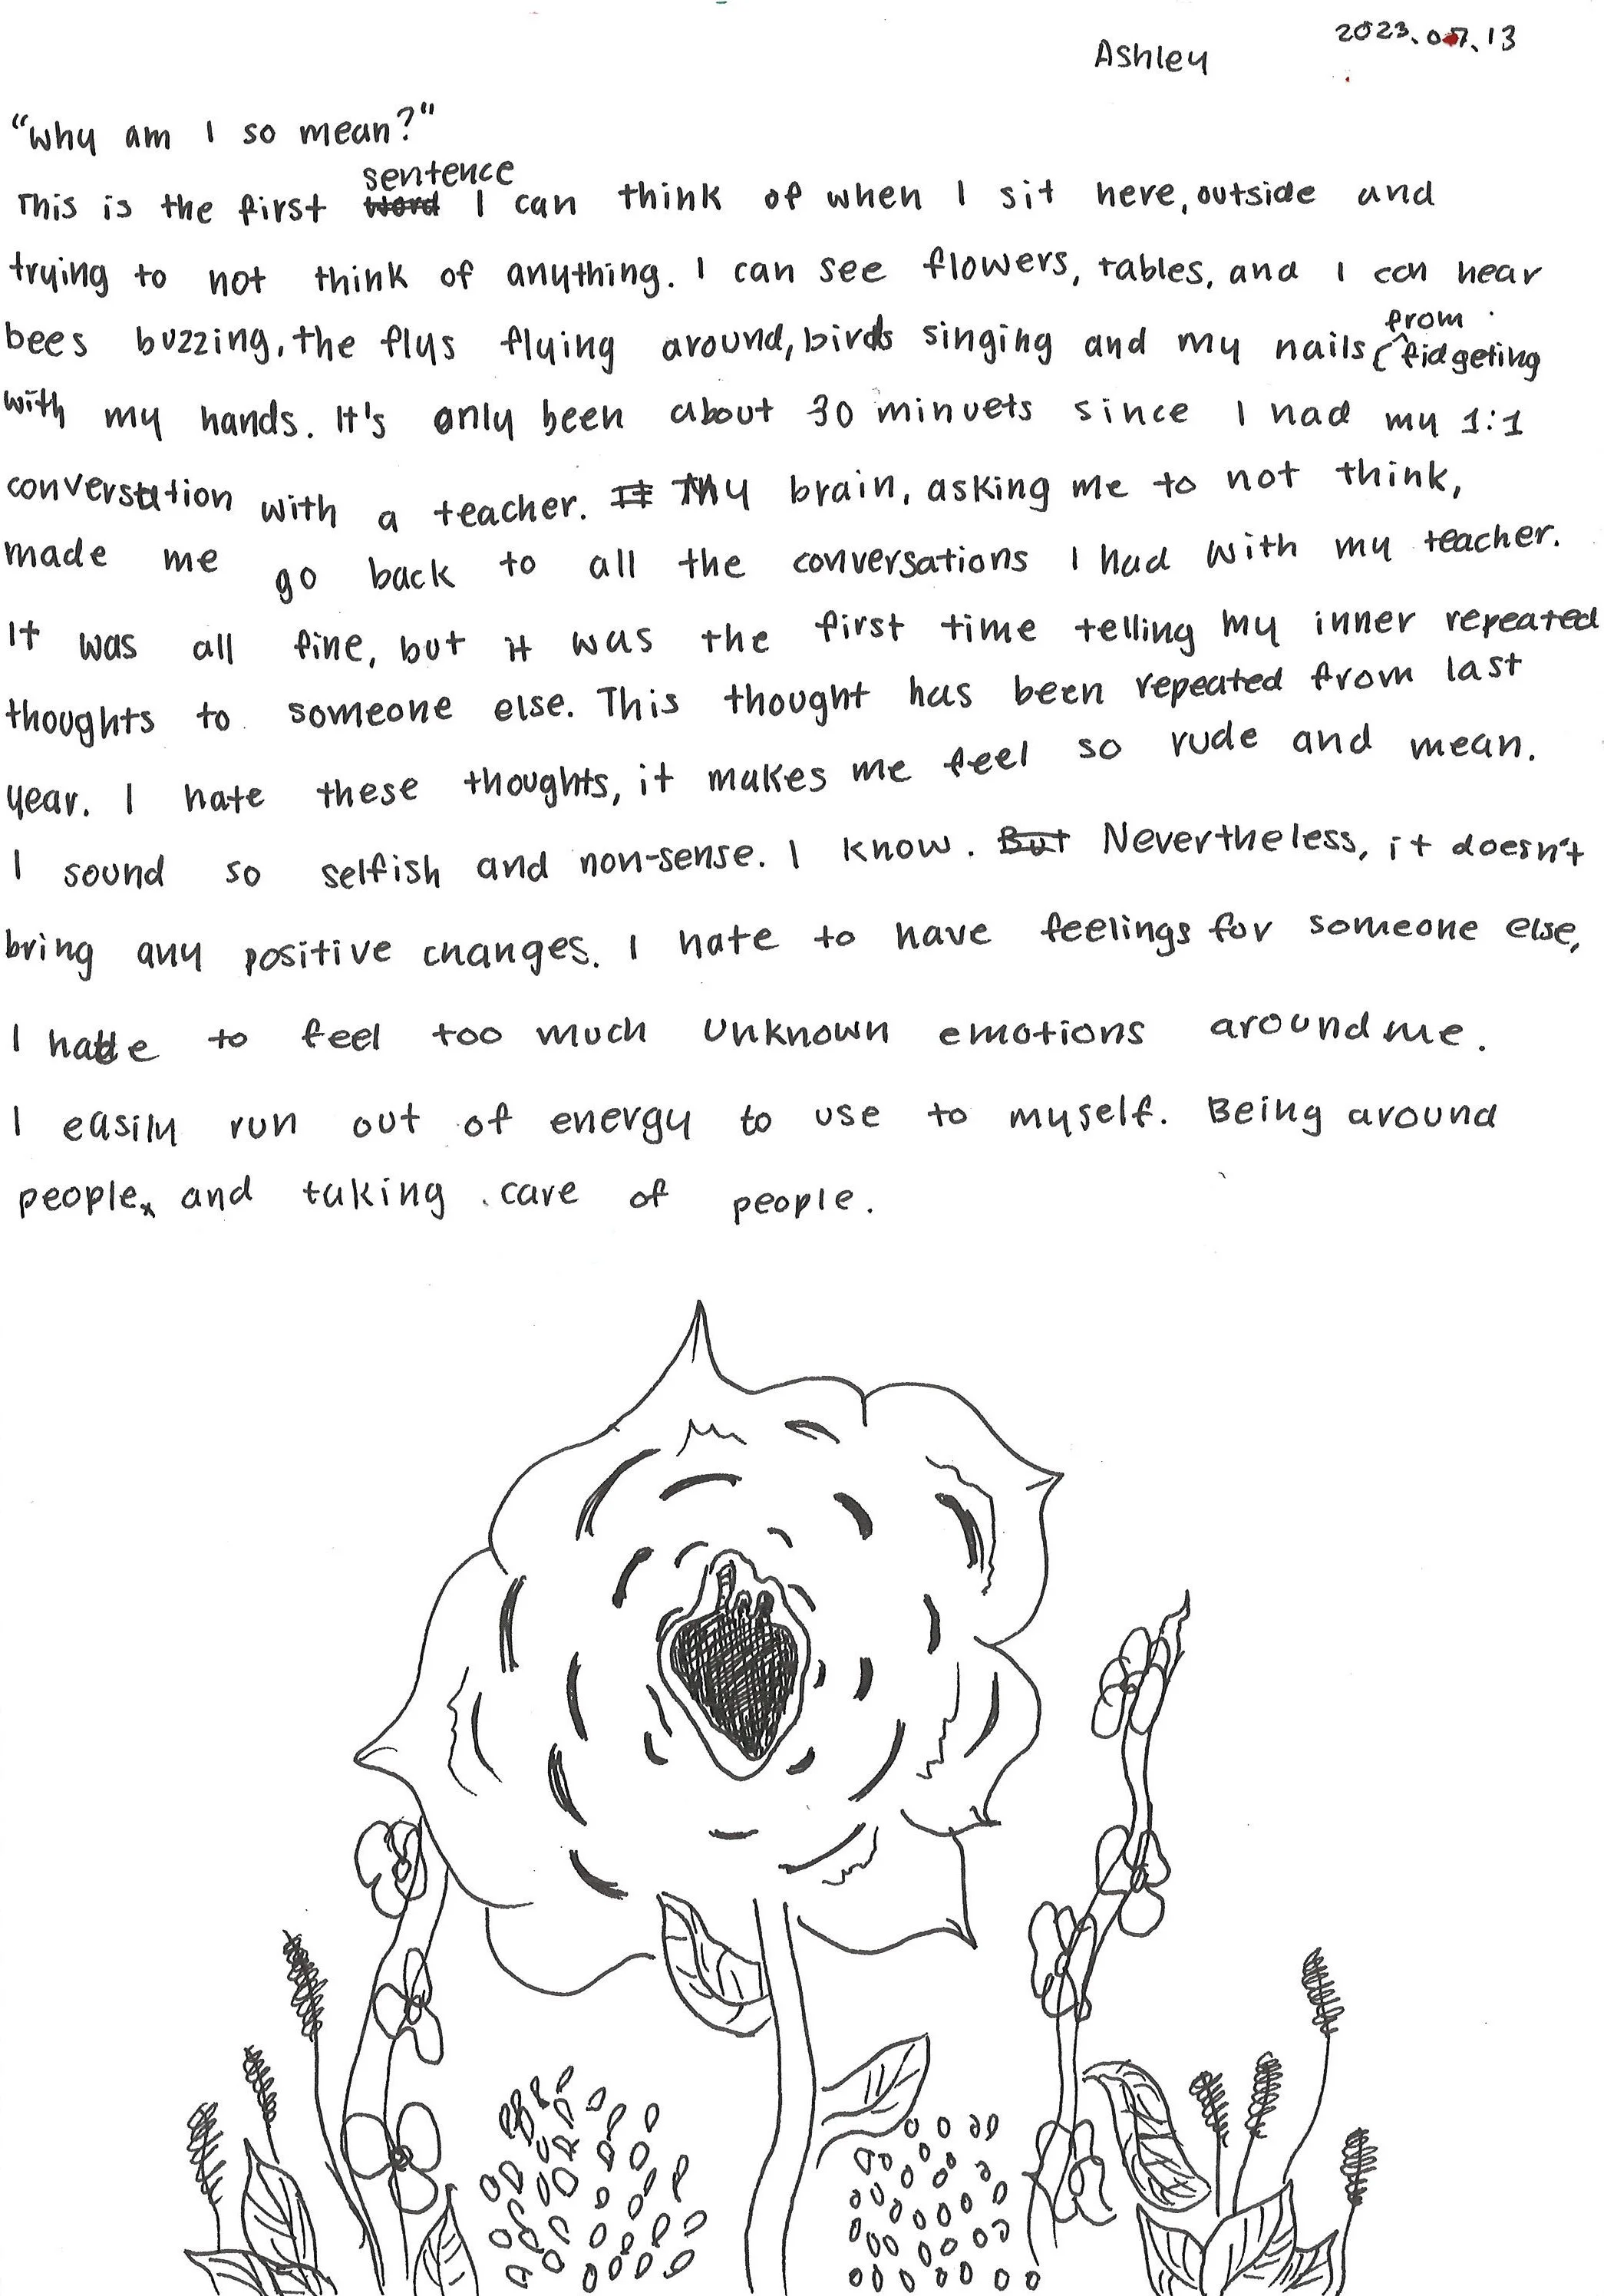 Ashley 2023.07.13
"Why am I so mean?"
sentence
This is the first word I can think of when I sit here, outside and
trying to not think of anything. I can see flowers, tables, and I can hear
from
bees buzzing, the flys flying around, birds singing and my nails ( fidgeting
with my hands. It's only been about 30 minuets since I had my 1:1
converstation with a teacher. It My brain, asking me to not think,
made me go back to all the conversations I had with my teacher.
It was all fine, but it was the first time telling my inner repeated
thoughts to someone else. This thought has been repeated from last
year. I hate these thoughts, it makes me feel so rude and mean.
I sound so selfish and non-sense. I know. But Nevertheless, it doesn't
bring any positive changes. I hate to have feelings for someone else,
I hate to feel too much unknown emotions around me.
I easily run out of energy to use to myself. Being around
people, and taking care of people.